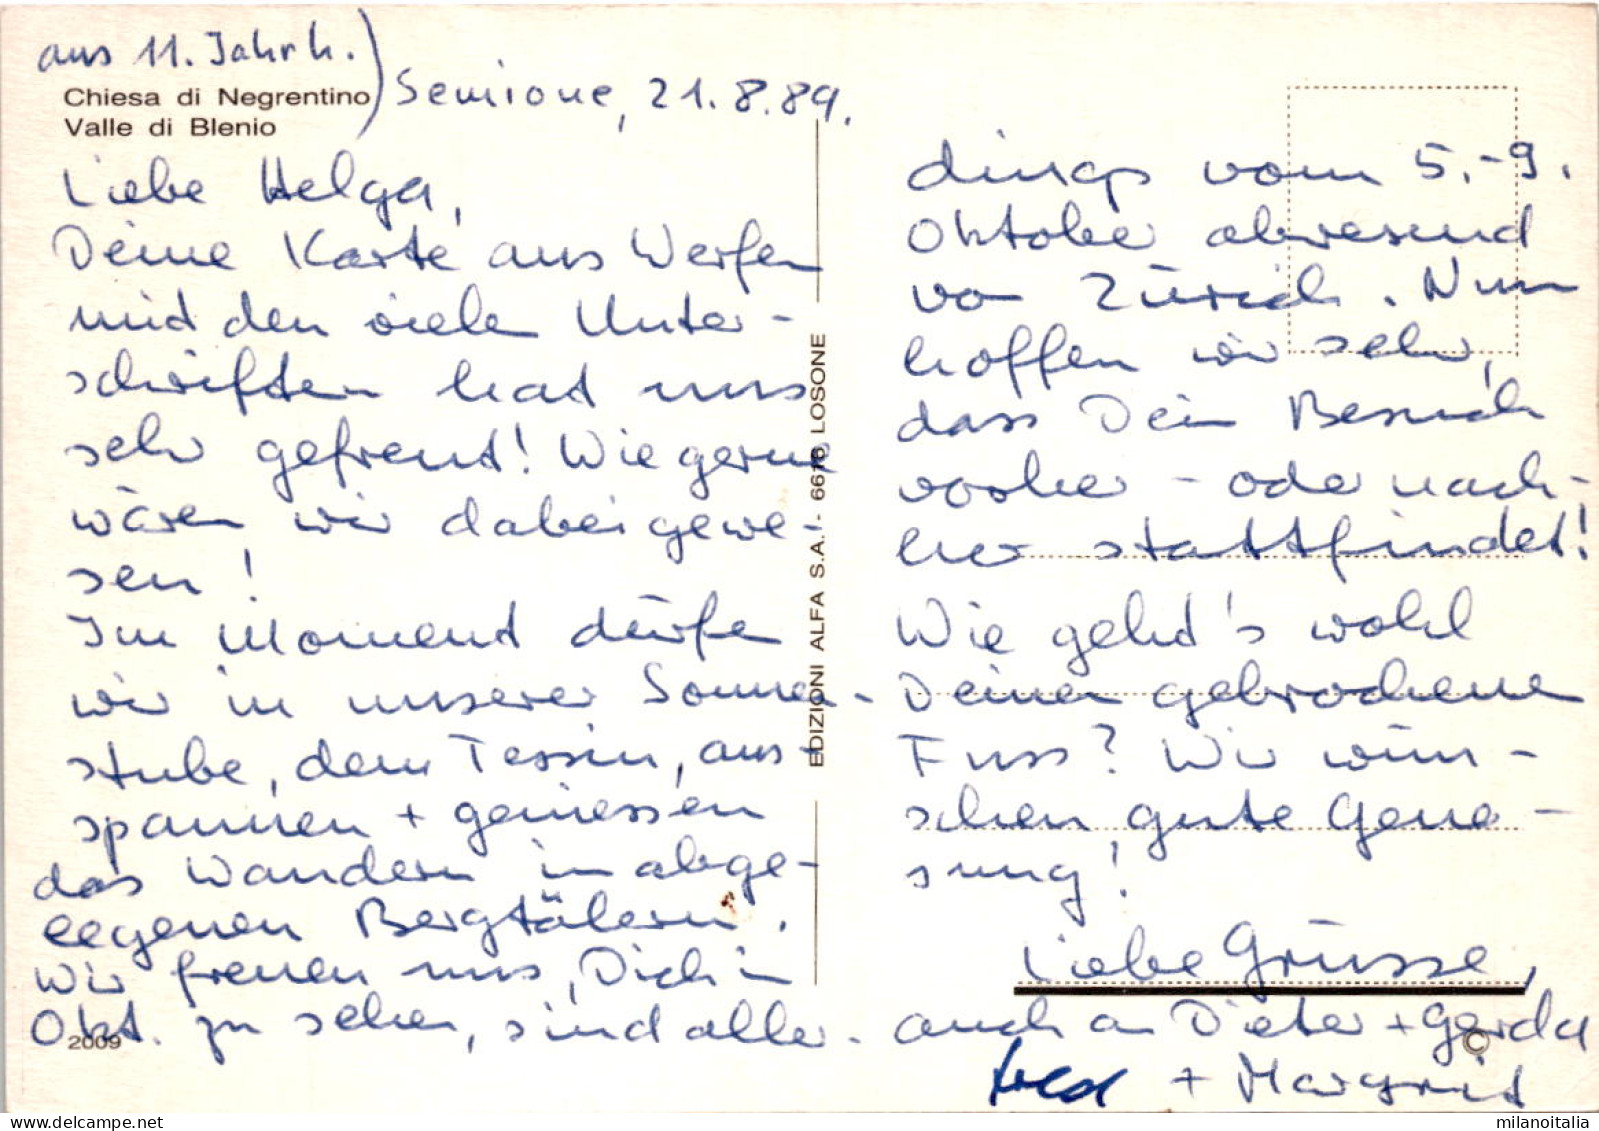 aus 11. Jahrh.)
Chiesa di Negrentino
Valle di Blenio
Semione, 21.8.89.
Liebe Helga,
Deine Karte aus Werfen
mit den vielen Unter-
schriften hat uns
sehr gefreut! Wie gerne
wären wir dabei gewe-
sen!
Im Moment dürfen
wir in unserer Sonnen-
stube, dem Tessin, aus-
spannen + geniessen
das Wandern in abge-
legenen Bergtälern.
Wir freuen uns, Dich in
Okt. zu sehen, sind aller-
2009
EDIZIONI ALFA S.A. - 6616 LOSONE
dings vom 5.-9.
Oktober abwesend
von Zürich. Nun
hoffen wir sehr,
dass Dein Besuch
vorher - oder nach-
her stattfindet!
Wie geht's wohl
Deinem gebrochenen
Fuss? Wir wün-
schen gute Gene-
sung!
Liebe Grüsse,
auch an Dieter + Gerda
©
+ Margrit
milanoitalia